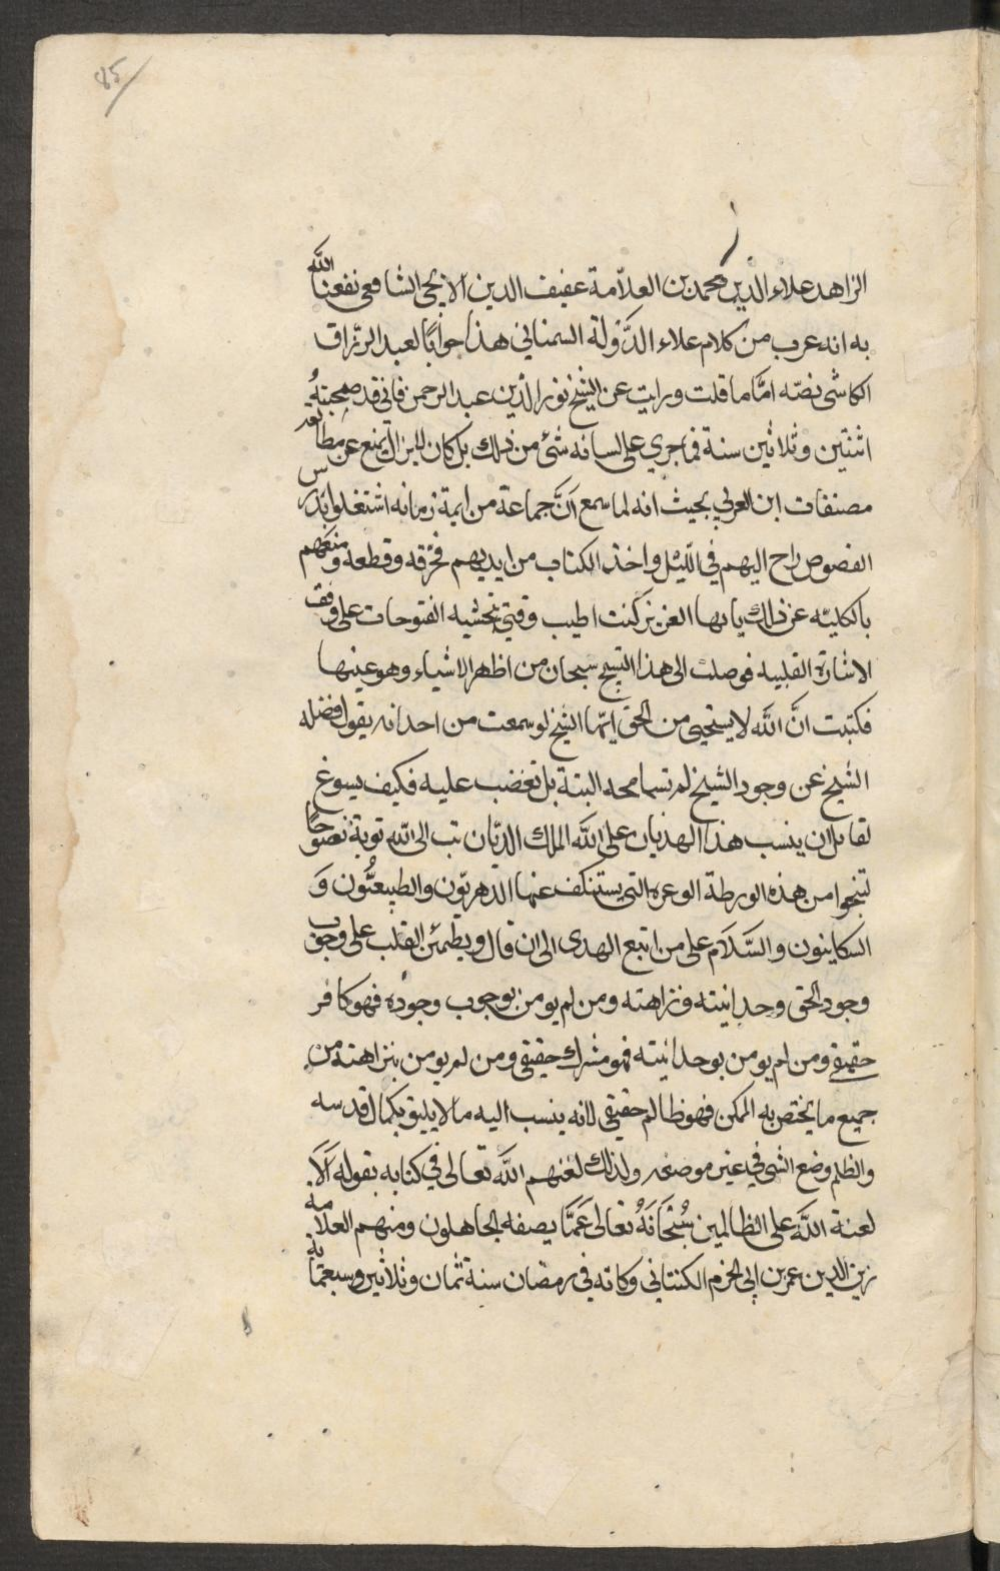 85
الزاهد علاء الدين محمد بن العلاّمة عفيف الدين الايجى الشافعى نفعنا الله
به انه عرب من كلام علاء الدَّولة السمنانى هذا جوابًا لعبد الرزاق
الكاشى نصّه امّا ما قلت ورايت عن الشيخ نور الدين عبد الرحمن فانى قد صحبتهُ
اثنتين وثلاثين سنة فما جرى على لسانه شئ من ذلك بل كان لايزال يمنع عن مطالعة
مصنفات ابن العربي بحيث انه لما سمع اَنَّ جماعة من ايمة زمانه اشتغلوا بدرس
الفصوص راح اليهم في الليل واخذ الكتاب من ايديهم فخرقه وقطعه ومنعهم
بالكلية عن ذلك يا ايها العزيز كنت اطيب وقتي بتحشيه الفتوحات على وفق
الاشارة القلبيه فوصلت الى هذا التسبيح سبحان من اظهر الاشياء وهو عينها
فكتبت انَّ الله لا يستحيى من الحق ايّها الشيخ لو سمعت من احد انه يقول فضله
الشيخ عن وجود الشيخ لم تسامحه البتة بل تغضب عليه فكيف يسوغ
لقائل ان ينسب هذا الهذيان على الله الملك الديّان تب الى الله توبة نصوحًا
لتنجوا من هذه الورطة الوعره التي يستنكف عنها الدهريون والطبيعيُّون وَ
السكاينون والسَّلَام على من اتبع الهدى الى ان قال ويطمئن القلب على وجوب
وجود الحق وحدانيته ونزاهته ومن لم يومن بوجوب وجوده فهو كافر
حقيقي ومن لم يومن بوحدانيته فهو مشرك حقيقى ومن لم يومن بنزاهته من
جميع ما يختص به الممكن فهو ظالم حقيقي لانه ينسب اليه ما لا يليق بكمال قدسه
والظلم وضع الشى في غير موضعه ولذلك لعنهم الله تعالى في كتابه بقوله اَلَا
لعنة الله على الظالمين سُبْحَانَهُ تعالى عَمَّا يصفه الجاهلون ومنهم العلامة
زين الدين عمر بن ابى الحزم الكتنانى وكانه فى رمضان سنة ثمان وثلاثين وسبعماية